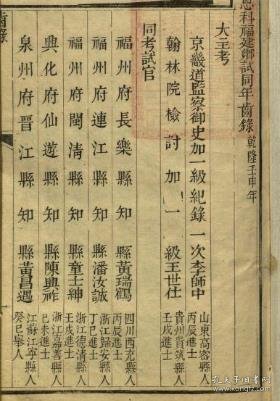 恩科福建鄉試同年齒錄 乾隆壬申年
大主考
京畿道監察御史加一級紀錄一次李師中 山東高密縣人 丙辰進士
翰林院檢討加一級王世仕 貴州貴筑縣人 壬戌進士
同考試官
福州府長樂縣知縣黃瑞鶴 四川西充縣人 丙辰進士
福州府連江縣知縣潘汝誠 浙江歸安縣人 丁巳進士
福州府閩清縣知縣童士紳 浙江德清縣人 壬戌進士
興化府仙遊縣知縣陳興祚 浙江善縣人 己未進士
泉州府晉江縣知縣黃昌遇 江蘇江寧縣人 癸巳舉人
齒錄